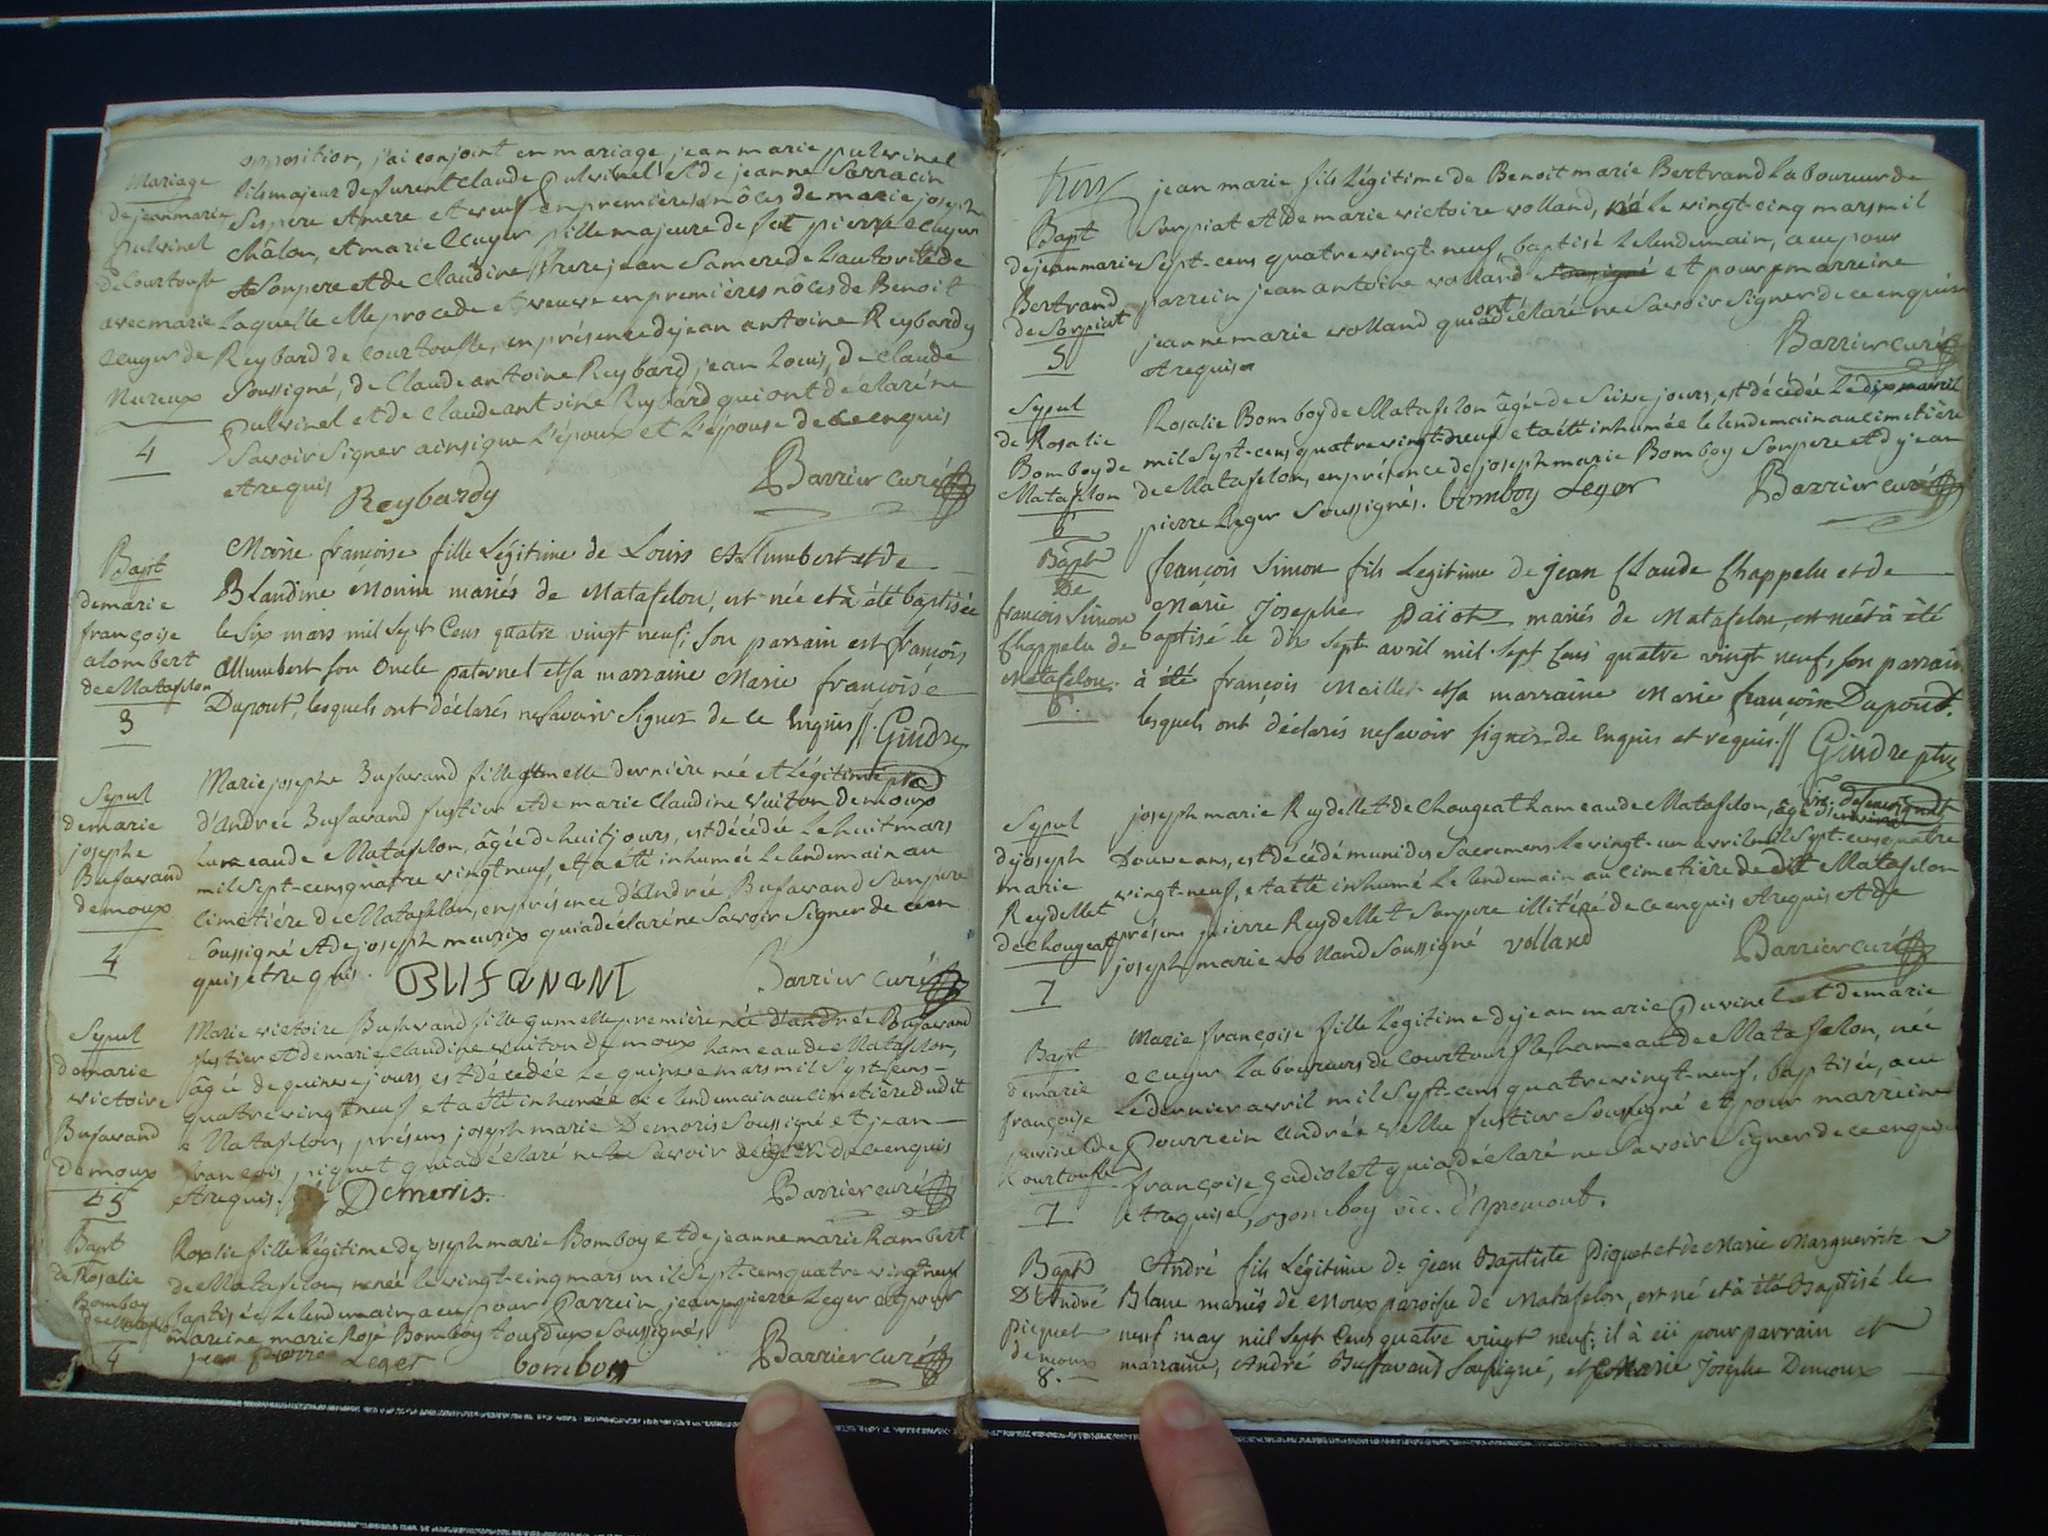 opposition, j'ai conjoint en mariage jean marie pulvinel
Mariage
de jean marie
pulvinel
de Courtoufle
avec marie
ecuyer de
Nureux
4
fils majeur de furent Claude Pulvinel et de jeanne Sarracin
Ses pere et mere et veuf en premières nôces de marie joseph
châlon, et marie Ecuyer fille majeure de feu pierre ecuyer
de Son pere et de Claudine frere jean Sa mere de L'autorité de
Laquelle elle procede et veuve en premières nôces de Benoit
Reybard de Courtoufle, en présence de jean antoine Reybardy
Soussigné, de Claude antoine Reybard jean Louis, de claude
Pulvinel et de claude antoine Reybard qui ont déclaré ne
Savoir Signer ainsi que L'époux et L'épouse de ce enquis
et requis
Reybardy
Barrier curé
Bapt
de marie
françoise
alombert
de Matafelon
3
Marie françoise fille Légitime de Louis Allumbert et de
Blandine Monin mariés de Matafelon, est née et à été baptisée
le Six mars mil Sept Cens quatre vingt neuf; Son parrain est françois
Allumbert son Oncle paternel et Sa marraine Marie françoise
Dupont, lesquels ont déclarés ne Savoir Signer de ce Enquis //. Gindre
Sepul
de marie
josephe
Bufavand
de moux
4
Marie josephe Bufavand fille gemelle dernière née et Légitime
d'André Bufavand fustier et de marie Claudine Vuiton de moux
hameau de Matafelon, âgée de huit jours, est décédée Le huit mars
mil Sept-cens quatre vingt neuf, et a eté inhumée Le lendemain au
cimetiére de Matafelon, en présence d'André Bufavand Son pere
Soussigné et de joseph meurix qui a déclaré ne Savoir Signer de ce en
quis et requis.
BUFAVANT
Barrier curé
Sepul
de marie
victoire
Bufavand
de moux
45
Marie victoire Bufavand fille gemelle première née d'andrée Bufavand
fustier et de marie claudine vuiton de moux hameau de Matafelon,
âgée de quinze jours est décédée Le quinze mars mil Sept-cens
quatre vingt neuf et a eté inhumée le lendemain au cimetière dudit
Matafelon, présens joseph marie Demoris Soussigné et jean
françois piquet qui a déclaré ne Savoir Signer de ce enquis
et requis.
Demoris.
Barrier curé
Bapt
de Rosalie
Bomboy
de Matafelon
4
Rosalie fille Légitime de joseph marie Bomboy et de jeanne marie Rambert
de Matafelon, née le vingt-cinq mars mil Sept-cens quatre vingt neuf
baptisée Le lendemain a eu pour Parrein jean pierre Leger et pour
mareine marie Rose Bomboy tous deux Soussignés
jean pierre Leger
bomboy
Barrier curé
trois
Bapt
de jean marie
Bertrand
de Sorpiat
5
jean marie fils Légitime de Benoit marie Bertrand Laboureur de
Sorpiat et de marie victoire volland, né Le vingt-cinq mars mil
Sept-cens quatre vingt-neuf baptisé Le lendemain, a eu pour
parrein jean antoine volland Soussigné et pour marreine
jeanne marie volland qui ont déclaré ne Savoir Signer de ce enquis
et requis
Barrier curé
Sepul
de Rosalie
Bomboy de
Matafelon
6
Rosalie Bomboy de Matafelon âgée de Seize jours, est décédée Le dix avril
mil Sept-cens quatre vingt-neuf et a été inhumée le lendemain au cimetière
de Matafelon, en présence de joseph marie Bomboy Son pere et de jean
pierre Leger Soussignés. bomboy Leger
Barrier curé
Bapt
de
françois Simon
Chappelu de
Matafelon.
6.
françois Simon fils Legitime de jean Claude Chappelu et de
Marie Josephe Païot mariés de Matafelon, est né et à été
baptisé le dix Sept avril mil Sept Cens quatre vingt neuf, son parrain
à été françois Maillet et Sa marraine Marie françoise Dupont.
lesquels ont déclarés ne Savoir Signer de Enquis et requis.// Gindre ptre
Sepul
de joseph
marie
Reydellet
de chougeat
7
joseph marie Reydellet de Chougeat hameau de Matafelon, âgé d'environ
Douze ans, est décédé muni des Sacremens Le vingt-un avril mil Sept-cens quatre
vingt-neuf, et a eté inhumé Le lendemain au cimetière de dit Matafelon
présens pierre Reydellet Son pere illitéré de ce enquis et requis et de
joseph marie volland Soussigné volland
Barrier curé
Bapt
de marie
françoise
puvinel de
Kourtoufle
7
Marie françoise fille Légitime de jean marie Puvinel et de marie
ecuyer Laboureurs de Courtoufle hameau de Matafelon, née
Le dernier avril mil Sept-cens quatre vingt-neuf, baptisée, a eu
Pour parrein andrée vellu fustier Soussigné et pour marreine
françoise gadiolet qui a déclaré ne Savoir Signer de ce enquise
et requise, bomboy vic. d'ysenmont.
Bapt
D'André
Picquet
de moux
8.
André fils Légitime de jean Baptiste Piquet et de Marie Marguerite
Blanc mariés de Moux paroisse de Matafelon, est né et à été Baptisé le
neuf may mil Sept Cens quatre vingt neuf: il à eü pour parrain et
marraine, André Buffavant Soussigné, et Marie Josephe Demoux